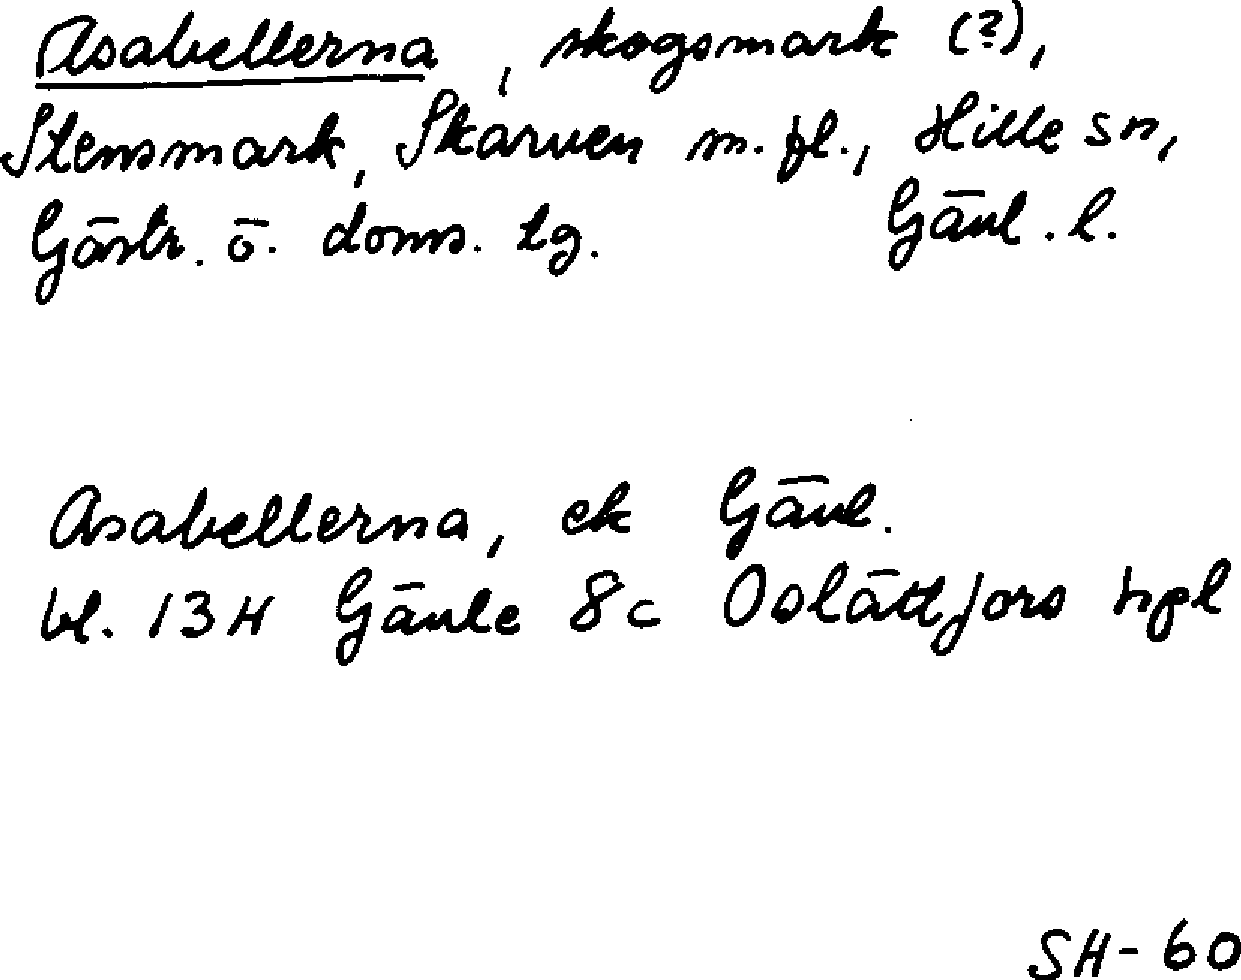 Asabellerna, skogsmark (?),
Stensmark, Skarven m. fl., Hille sn,
Gästr. ö. doms. tg. Gävl. l.
Asabellerna, ek Gävl.
bl. 13H Gävle 8c Oslättfors hpl
SH-60